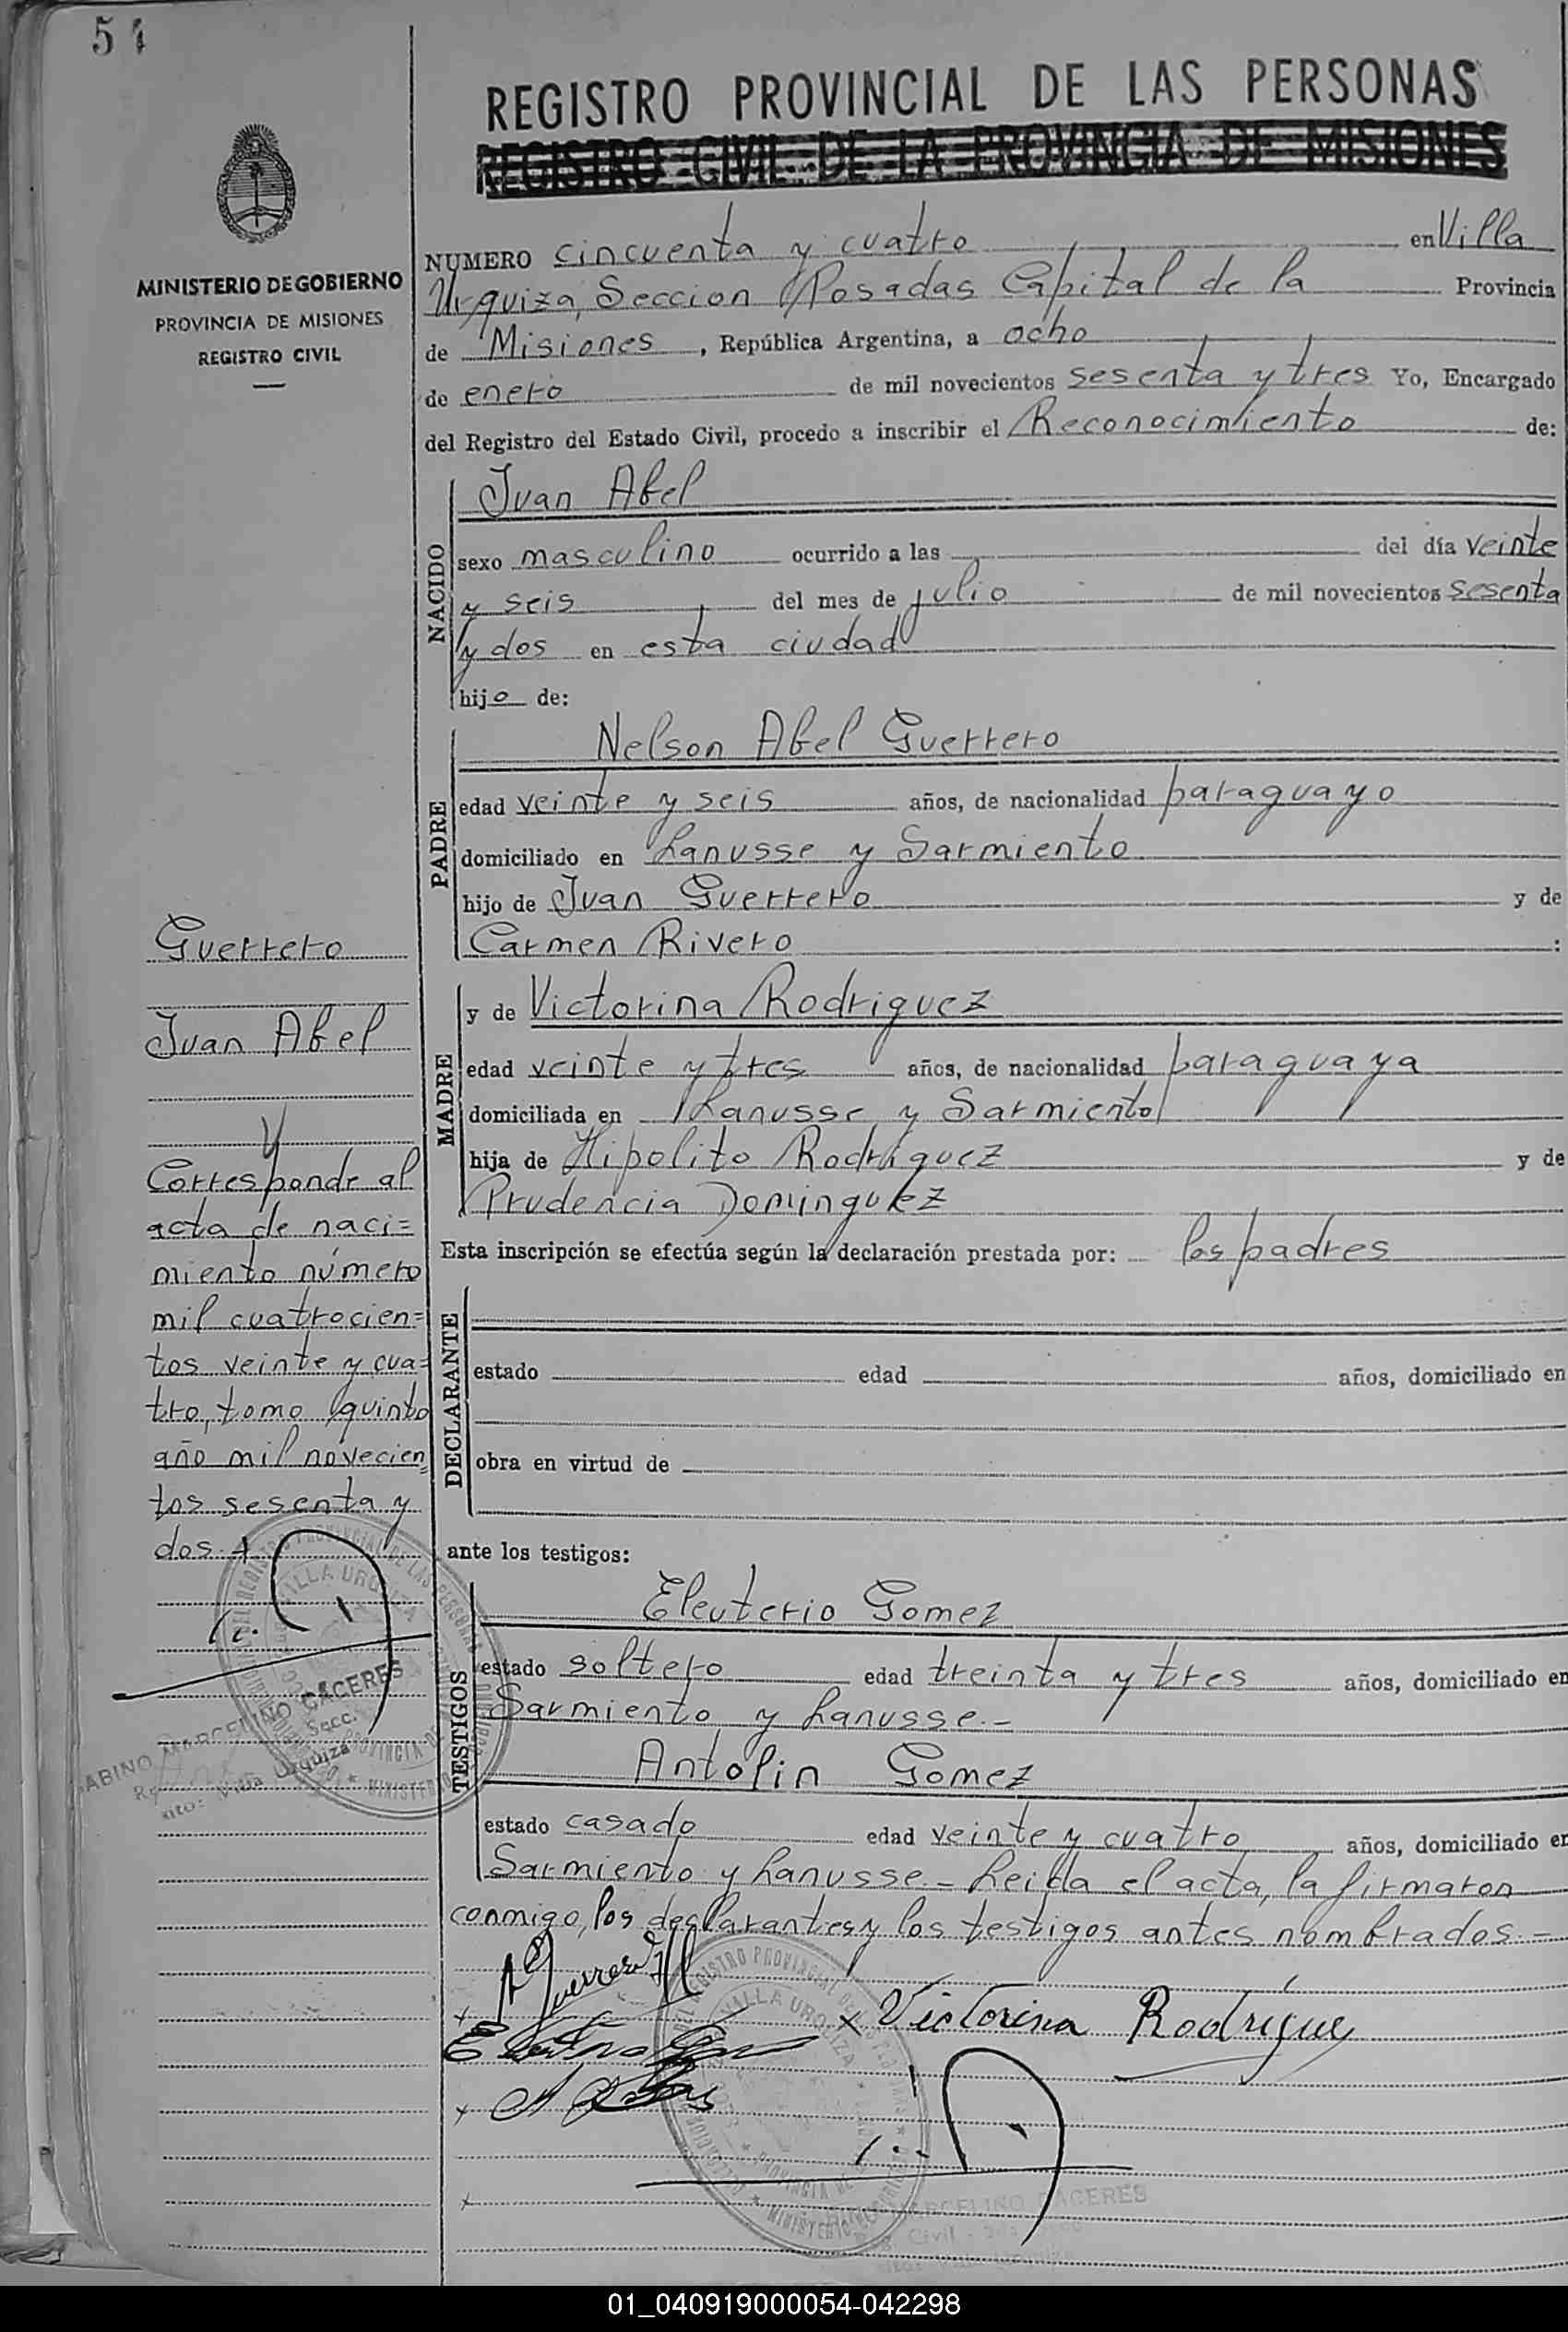 54
REGISTRO PROVINCIAL DE LAS PERSONAS
REGISTRO CIVIL DE LA PROVINCIA DE MISIONES
MINISTERIO DE GOBIERNO
PROVINCIA DE MISIONES
REGISTRO CIVIL
NUMERO cincuenta y cuatro en Villa
Urquiza, Seccion Posadas Capital de la Provincia
de Misiones, República Argentina, a ocho
de enero de mil novecientos sesenta y tres Yo, Encargado
del Registro del Estado Civil, procedo a inscribir el Reconocimiento de:
NACIDO
Juan Abel
sexo masculino ocurrido a las del día veinte
y seis del mes de julio de mil novecientos sesenta
y dos en esta ciudad
hijo de:
PADRE
Nelson Abel Guerrero
edad veinte y seis años, de nacionalidad paraguayo
domiciliado en Lanusse y Sarmiento
hijo de Juan Guerrero y de
Carmen Rivero :
MADRE
y de Victorina Rodriguez
edad veinte y tres años, de nacionalidad paraguaya
domiciliada en Lanusse y Sarmiento
hija de Hipolito Rodriguez y de
Prudencia Dominguez
Esta inscripción se efectúa según la declaración prestada por: los padres
DECLARANTE
estado edad años, domiciliado en
obra en virtud de
ante los testigos:
TESTIGOS
Eleuterio Gomez
estado soltero edad treinta y tres años, domiciliado en
Sarmiento y Lanusse.-
Antolin Gomez
estado casado edad veinte y cuatro años, domiciliado en
Sarmiento y Lanusse.- Leida el acta, la firmaron
conmigo, los declarantes y los testigos antes nombrados.-
Victorina Rodríguez
MARCELINO CACERES
Guerrero
Juan Abel
y
Corresponde al
acta de naci=
miento número
mil cuatrocien=
tos veinte y cua=
tro, tomo quinto
año mil novecien=
tos sesenta y
dos
VILLA URQUIZA
GABINO MARCELINO CACERES
Secc.
Villa Urquiza
01_040919000054-042298